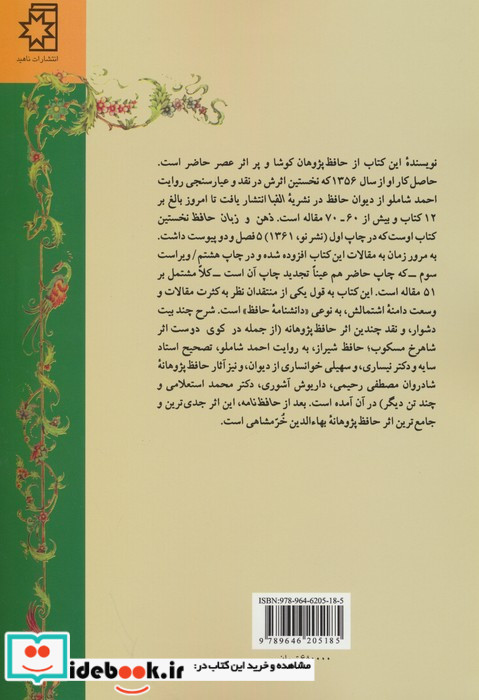 انتشارات ناهید
نویسندهٔ این کتاب از حافظ‌پژوهان کوشا و پر اثر عصر حاضر است.
حاصل کار او از سال ۱۳۵۶ که نخستین اثرش در نقد و عیارسنجی روایت
احمد شاملو از دیوان حافظ در نشریهٔ الفبا انتشار یافت تا امروز بالغ بر
۱۲ کتاب و بیش از ۶۰ـ۷۰ مقاله است. ذهن و زبان حافظ نخستین
کتاب اوست که در چاپ اول (نشر نو، ۱۳۶۱) ۵ فصل و دو پیوست داشت.
به مرور زمان به مقالات این کتاب افزوده شده و در چاپ هشتم/ویراست
سوم ــ که چاپ حاضر هم عیناً تجدید چاپ آن است ــ کلاً مشتمل بر
۵۱ مقاله است. این کتاب به قول یکی از منتقدان نظر به کثرت مقالات و
وسعت دامنهٔ اشتمالش، به نوعی «دانشنامهٔ حافظ» است. شرح چند بیت
دشوار، و نقد چندین اثر حافظ‌پژوهانه (از جمله در کوی دوست اثر
شاهرخ مسکوب؛ حافظ شیراز، به روایت احمد شاملو، تصحیح استاد
سایه و دکتر نیساری، و سهیلی خوانساری از دیوان، و نیز آثار حافظ‌پژوهانهٔ
شادروان مصطفی رحیمی، داریوش آشوری، دکتر محمد استعلامی و
چند تن دیگر) در آن آمده است. بعد از حافظ‌نامه، این اثر جدی‌ترین و
جامع‌ترین اثر حافظ‌پژوهانهٔ بهاءالدین خُرّمشاهی است.
ISBN: 978-964-6205-18-5
9 789646 205185
idebook.ir
مشاهده و خرید این کتاب در: